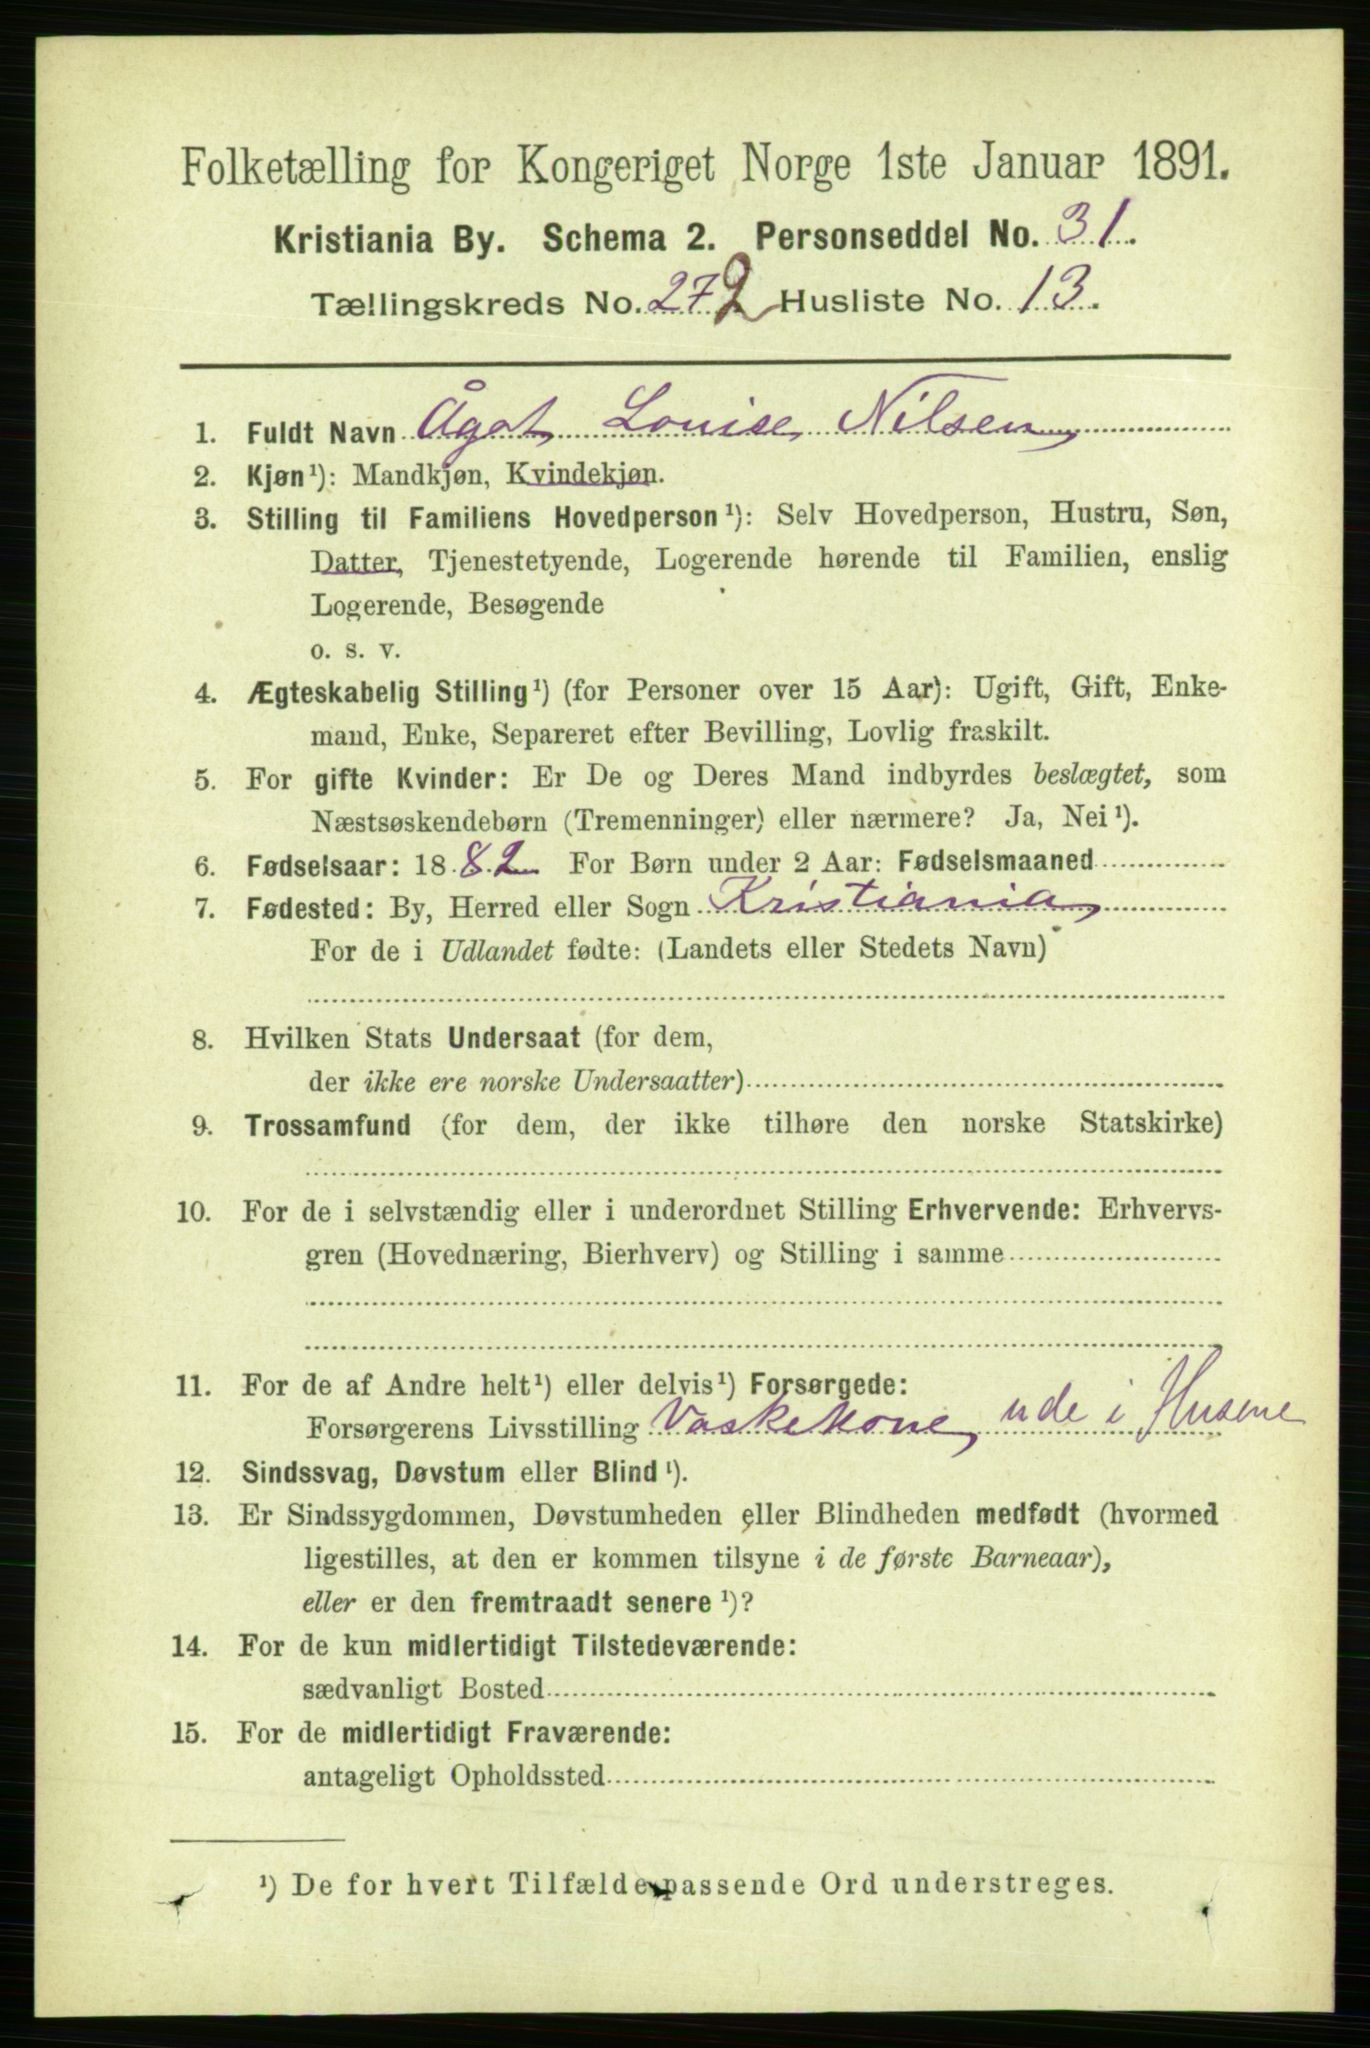 Folketælling for Kongeriget Norge 1ste Januar 1891.
Kristiania By. Schema 2. Personseddel No. 31.
Tællingskreds No. 272 Husliste No. 13.
1. Fuldt Navn Ågot Louise Nilsen
2. Kjøn¹): Mandkjøn, Kvindekjøn.
3. Stilling til Familiens Hovedperson¹): Selv Hovedperson, Hustru, Søn,
Datter, Tjenestetyende, Logerende hørende til Familien, enslig
Logerende, Besøgende
o. s. v.
4. Ægteskabelig Stilling¹) (for Personer over 15 Aar): Ugift, Gift, Enke-
mand, Enke, Separeret efter Bevilling, Lovlig fraskilt.
5. For gifte Kvinder: Er De og Deres Mand indbyrdes beslægtet, som
Næstsøskendebørn (Tremenninger) eller nærmere? Ja, Nei¹).
6. Fødselsaar: 1882 For Børn under 2 Aar: Fødselsmaaned
7. Fødested: By, Herred eller Sogn Kristiania
For de i Udlandet fødte: (Landets eller Stedets Navn)
8. Hvilken Stats Undersaat (for dem,
der ikke ere norske Undersaatter)
9. Trossamfund (for dem, der ikke tilhøre den norske Statskirke)
10. For de i selvstændig eller i underordnet Stilling Erhvervende: Erhvervs-
gren (Hovednæring, Bierhverv) og Stilling i samme
11. For de af Andre helt¹) eller delvis¹) Forsørgede:
Forsørgerens Livsstilling Vaskekone ude i Husene
12. Sindssvag, Døvstum eller Blind¹).
13. Er Sindssygdommen, Døvstumheden eller Blindheden medfødt (hvormed
ligestilles, at den er kommen tilsyne i de første Barneaar),
eller er den fremtraadt senere¹)?
14. For de kun midlertidigt Tilstedeværende:
sædvanligt Bosted
15. For de midlertidigt Fraværende:
antageligt Opholdssted
¹) De for hvert Tilfælde passende Ord understreges.